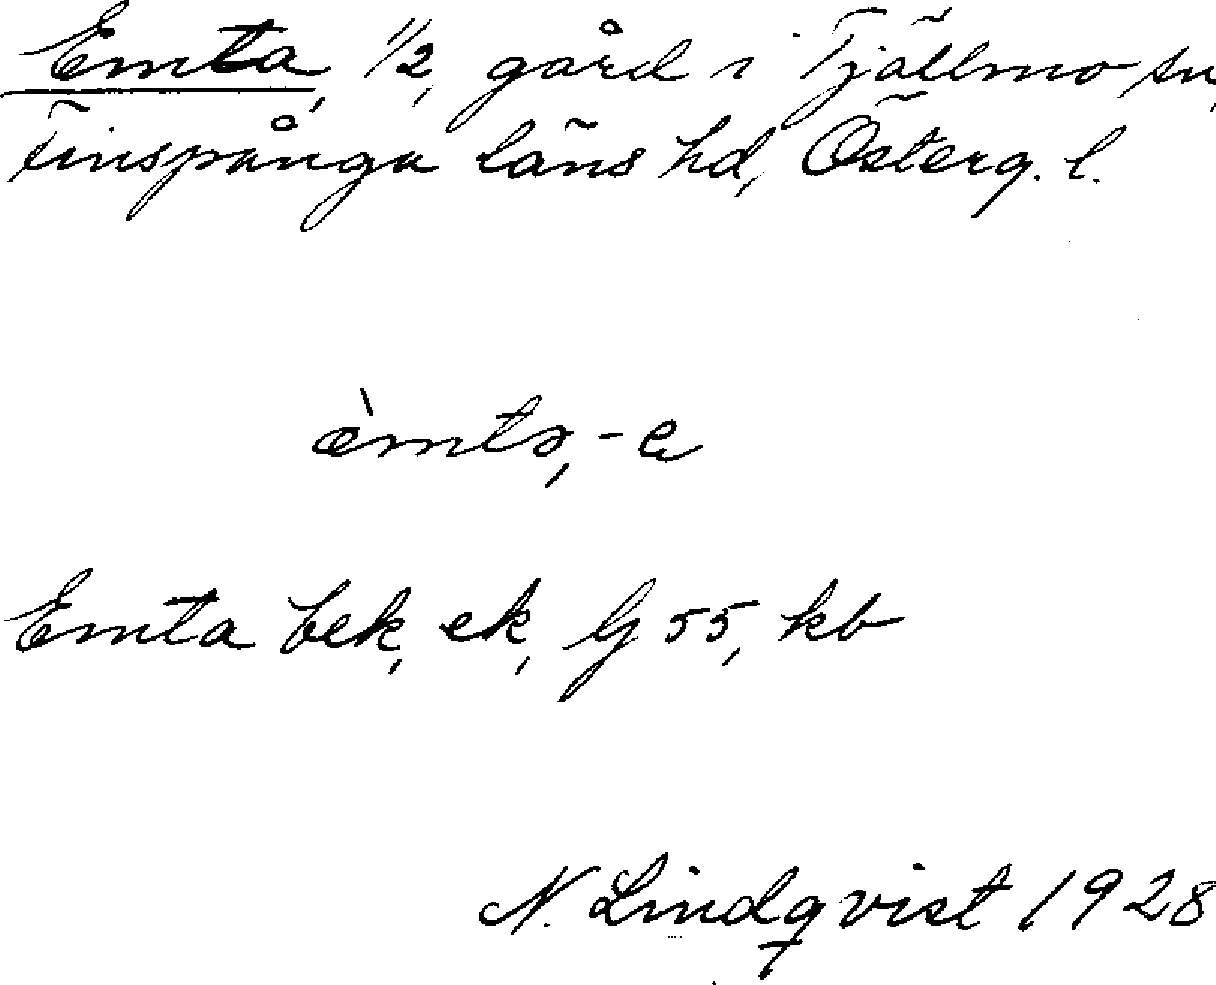 Emta, 1/2, gård i Tjällmo sn,
Finspånga läns hd, Österg. l.
æ̀mta, -e
Emta bek, ek, G 55, kb
N. Lindqvist 1928